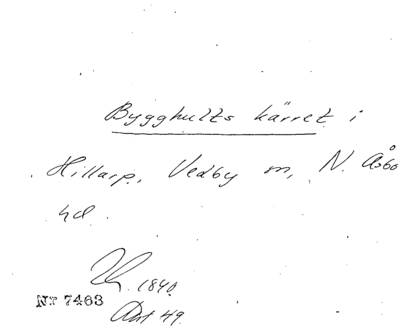 Bygghults kärret i
Hillarp, Vedby sn, N. Åsbo
hd.
1840.
Nr 7463
Akt 49.